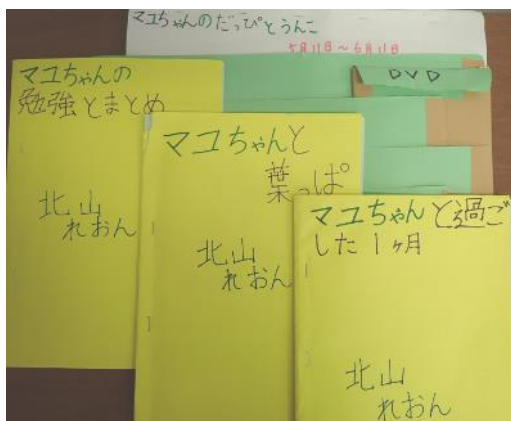 マユちゃんのだっぴとうんこ
5月11日～6月11日
DVD
マユちゃんの
勉強とまとめ
北山
れおん
マユちゃんと
葉っぱ
北山
れおん
マユちゃんと過ご
した1ヶ月
北山
れおん